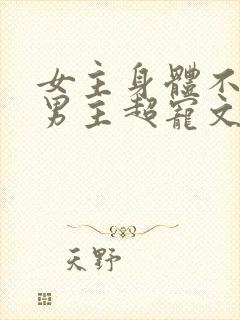 女主身體不
男主超寵文
天野